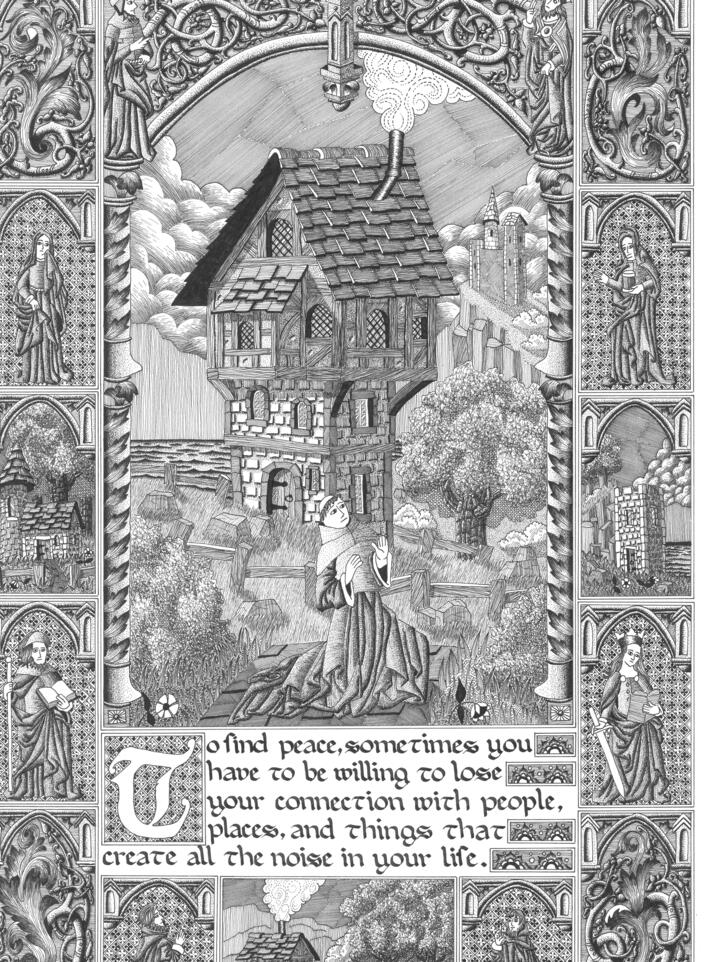 To find peace, sometimes you
have to be willing to lose
your connection with people,
places, and things that
create all the noise in your life.